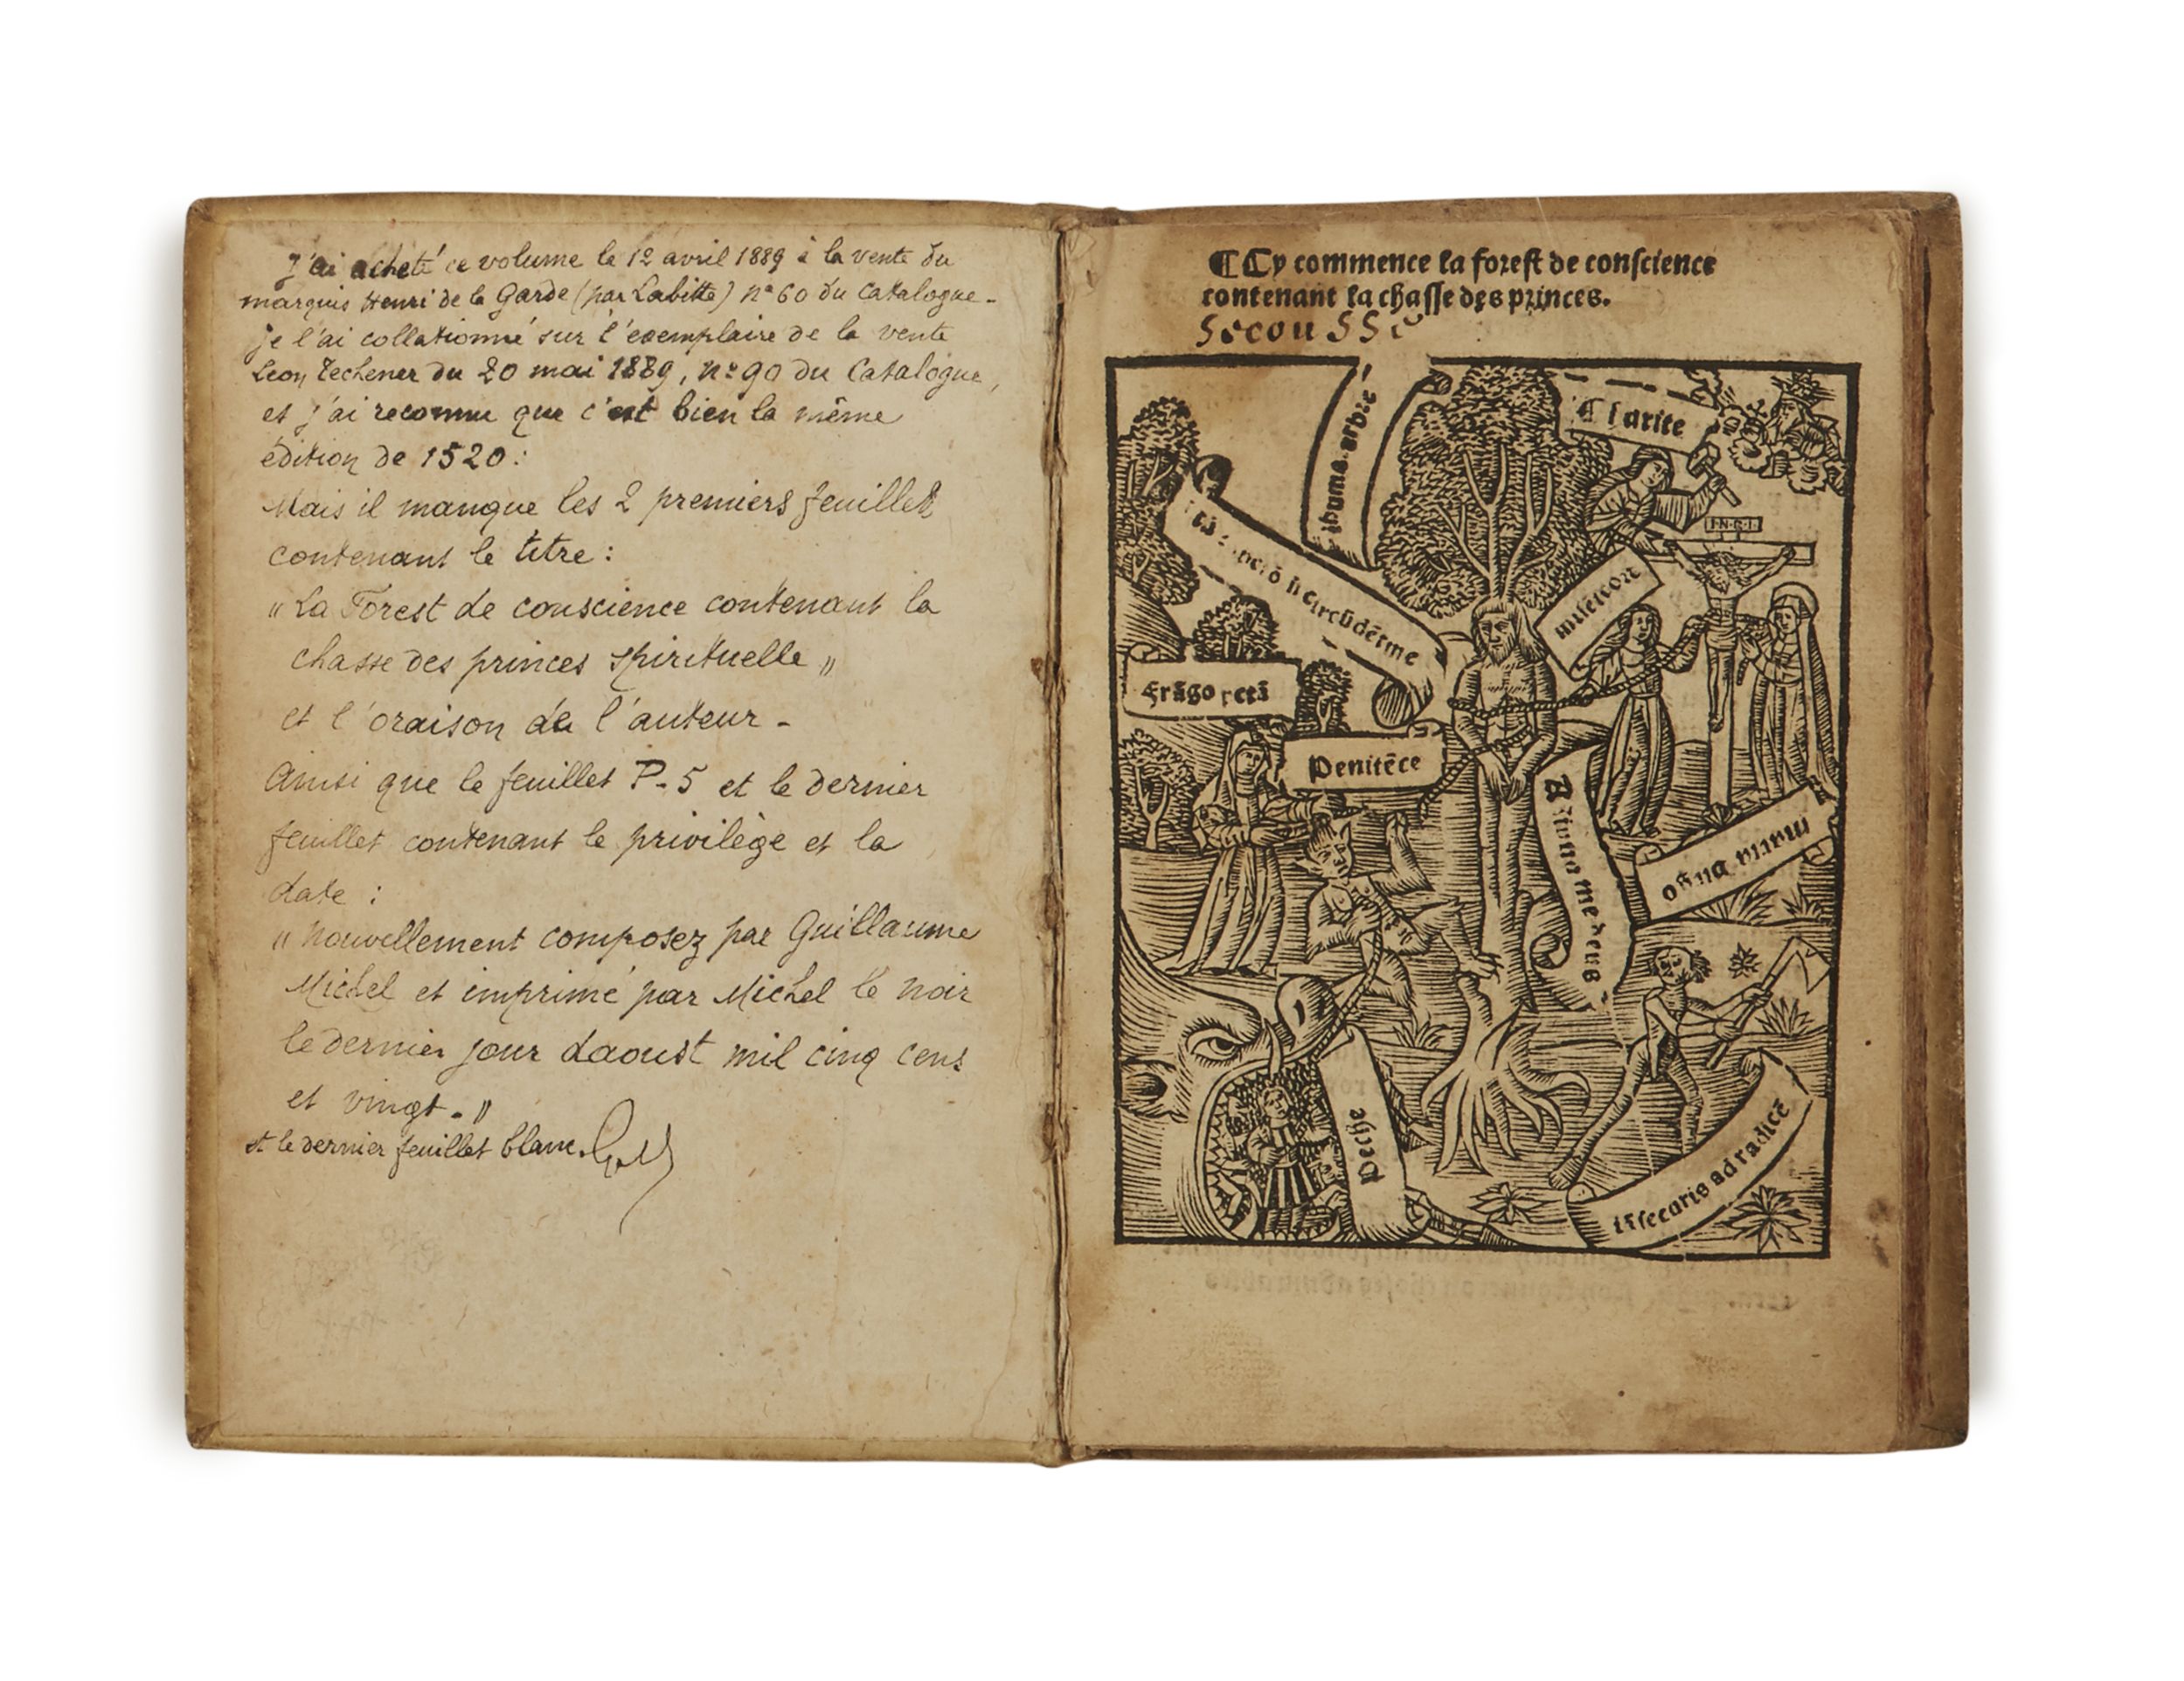 J'ai acheté ce volume le 12 avril 1889 à la vente du
marquis Henri de la Garde (par Labitte) nº 60 du Catalogue -
je l'ai collationné sur l'exemplaire de la vente
Leon Techener du 20 mai 1889, nº 90 du Catalogue,
et j'ai reconnu que c'est bien la même
édition de 1520 :
Mais il manque les 2 premiers feuillets
contenant le titre :
"La Forest de conscience contenant la
chasse des princes spirituelle "
et l'oraison de l'auteur -
Ainsi que le feuillet P-5 et le dernier
feuillet contenant le privilège et la
date :
" Nouvellement composez par Guillaume
Michel et imprimé par Michel le Noir
le dernier jour daoust mil cinq cens
et vingt - "
et le dernier feuillet blanc.
¶ Cy commence la forest de conscience
contenant la chasse des princes.
Secousse
Charite
I·N·R·I
misericor
circūdēt me
Frāgo
Penitēce
Adiuua me deus
Peche
ad radicē